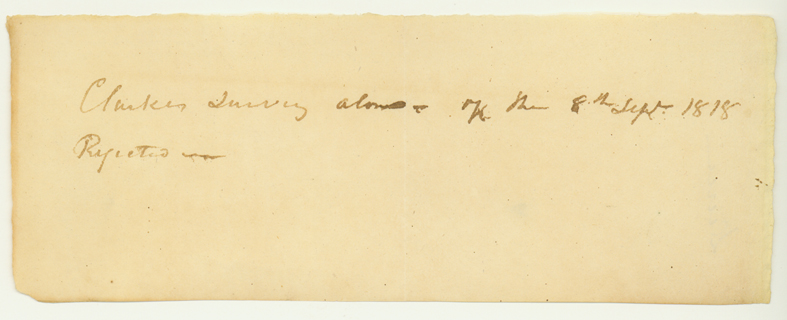 Clarkes Survey alone - of the 8th Sept. 1818
Rejected